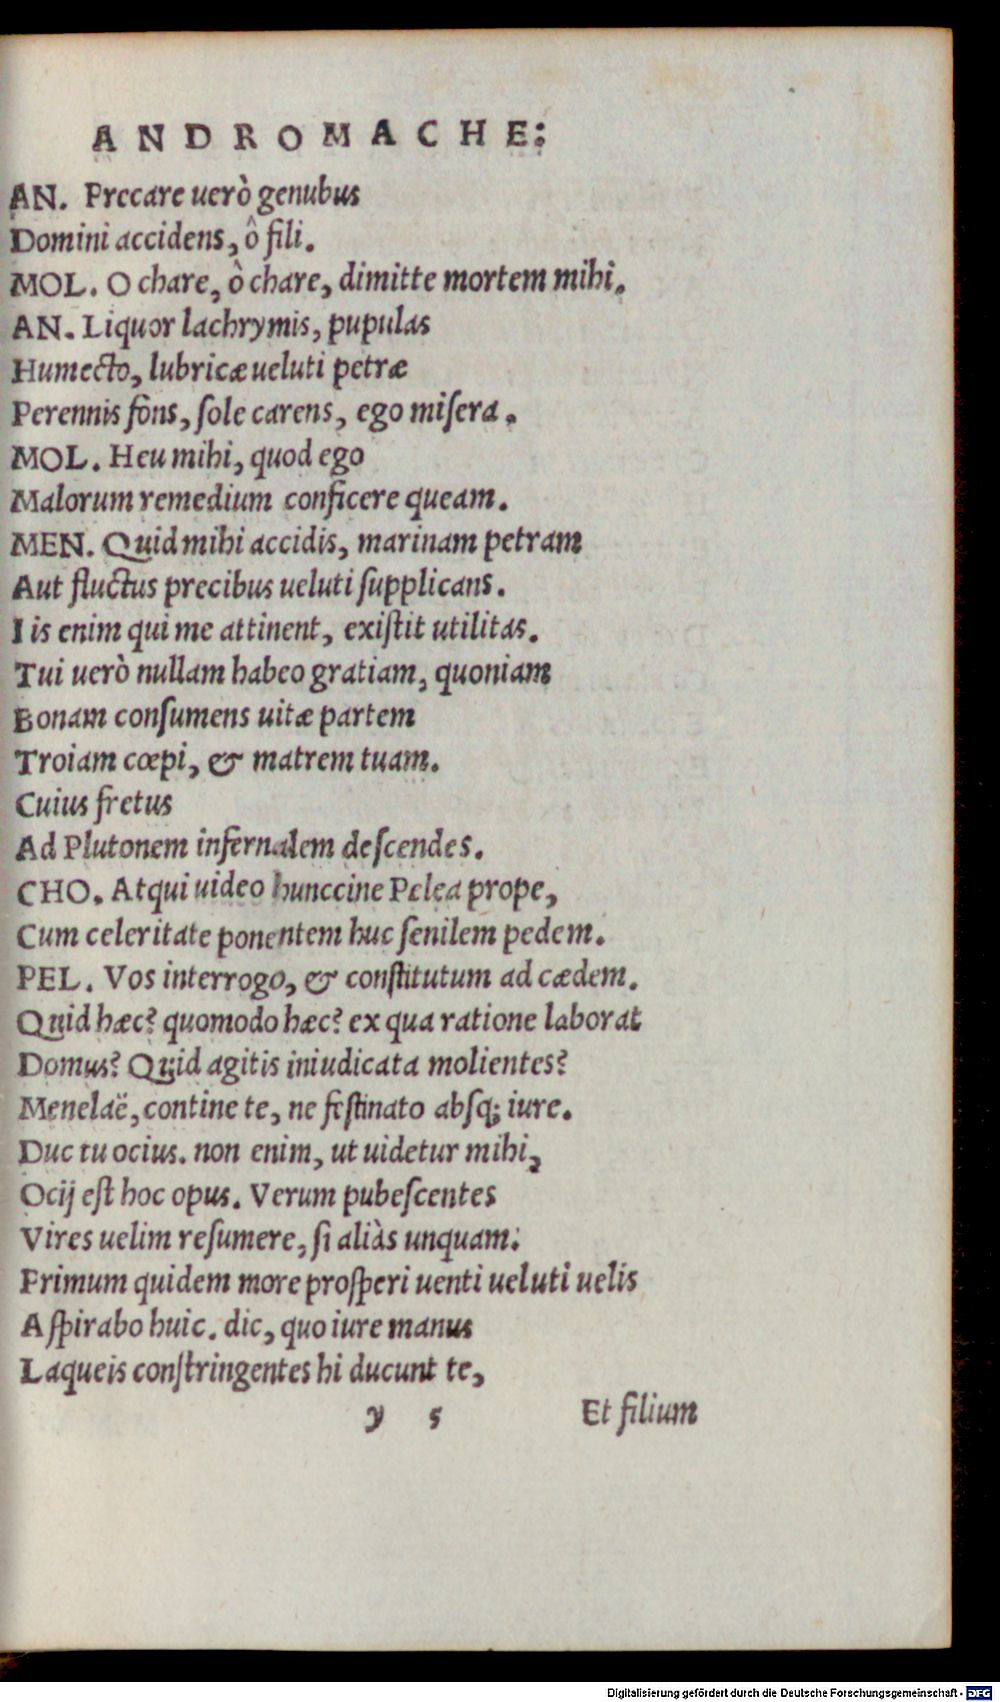 ANDROMACHE:
AN. Precare uerò genubus
Domini accidens, ô fili.
MOL. O chare, ô chare, dimitte mortem mihi.
AN. Liquor lachrymis, pupulas
Humecto, lubricæ ueluti petræ
Perennis fôns, sole carens, ego misera.
MOL. Heu mihi, quod ego
Malorum remedium conficere queam.
MEN. Quid mihi accidis, marinam petram
Aut fluctus precibus ueluti supplicans.
Iis enim qui me attinent, existit utilitas.
Tui uerò nullam habeo gratiam, quoniam
Bonam consumens uitæ partem
Troiam cœpi, & matrem tuam.
Cuius fretus
Ad Plutonem infernalem descendes.
CHO. Atqui uideo hunccine Pelea prope,
Cum celeritate ponentem huc senilem pedem.
PEL. Vos interrogo, & constitutum ad cædem.
Quid hæc? quomodo hæc? ex qua ratione laborat
Domus? Quid agitis iniudicata molientes?
Menelaë, contine te, ne festinato absq; iure.
Duc tu ocius. non enim, ut uidetur mihi,
Ocij est hoc opus. Verum pubescentes
Vires uelim resumere, si aliàs unquam:
Primum quidem more prosperi uenti ueluti uelis
Aspirabo huic. dic, quo iure manus
Laqueis constringentes hi ducunt te,
y 5 Et filium
Digitalisierung gefördert durch die Deutsche Forschungsgemeinschaft - DFG